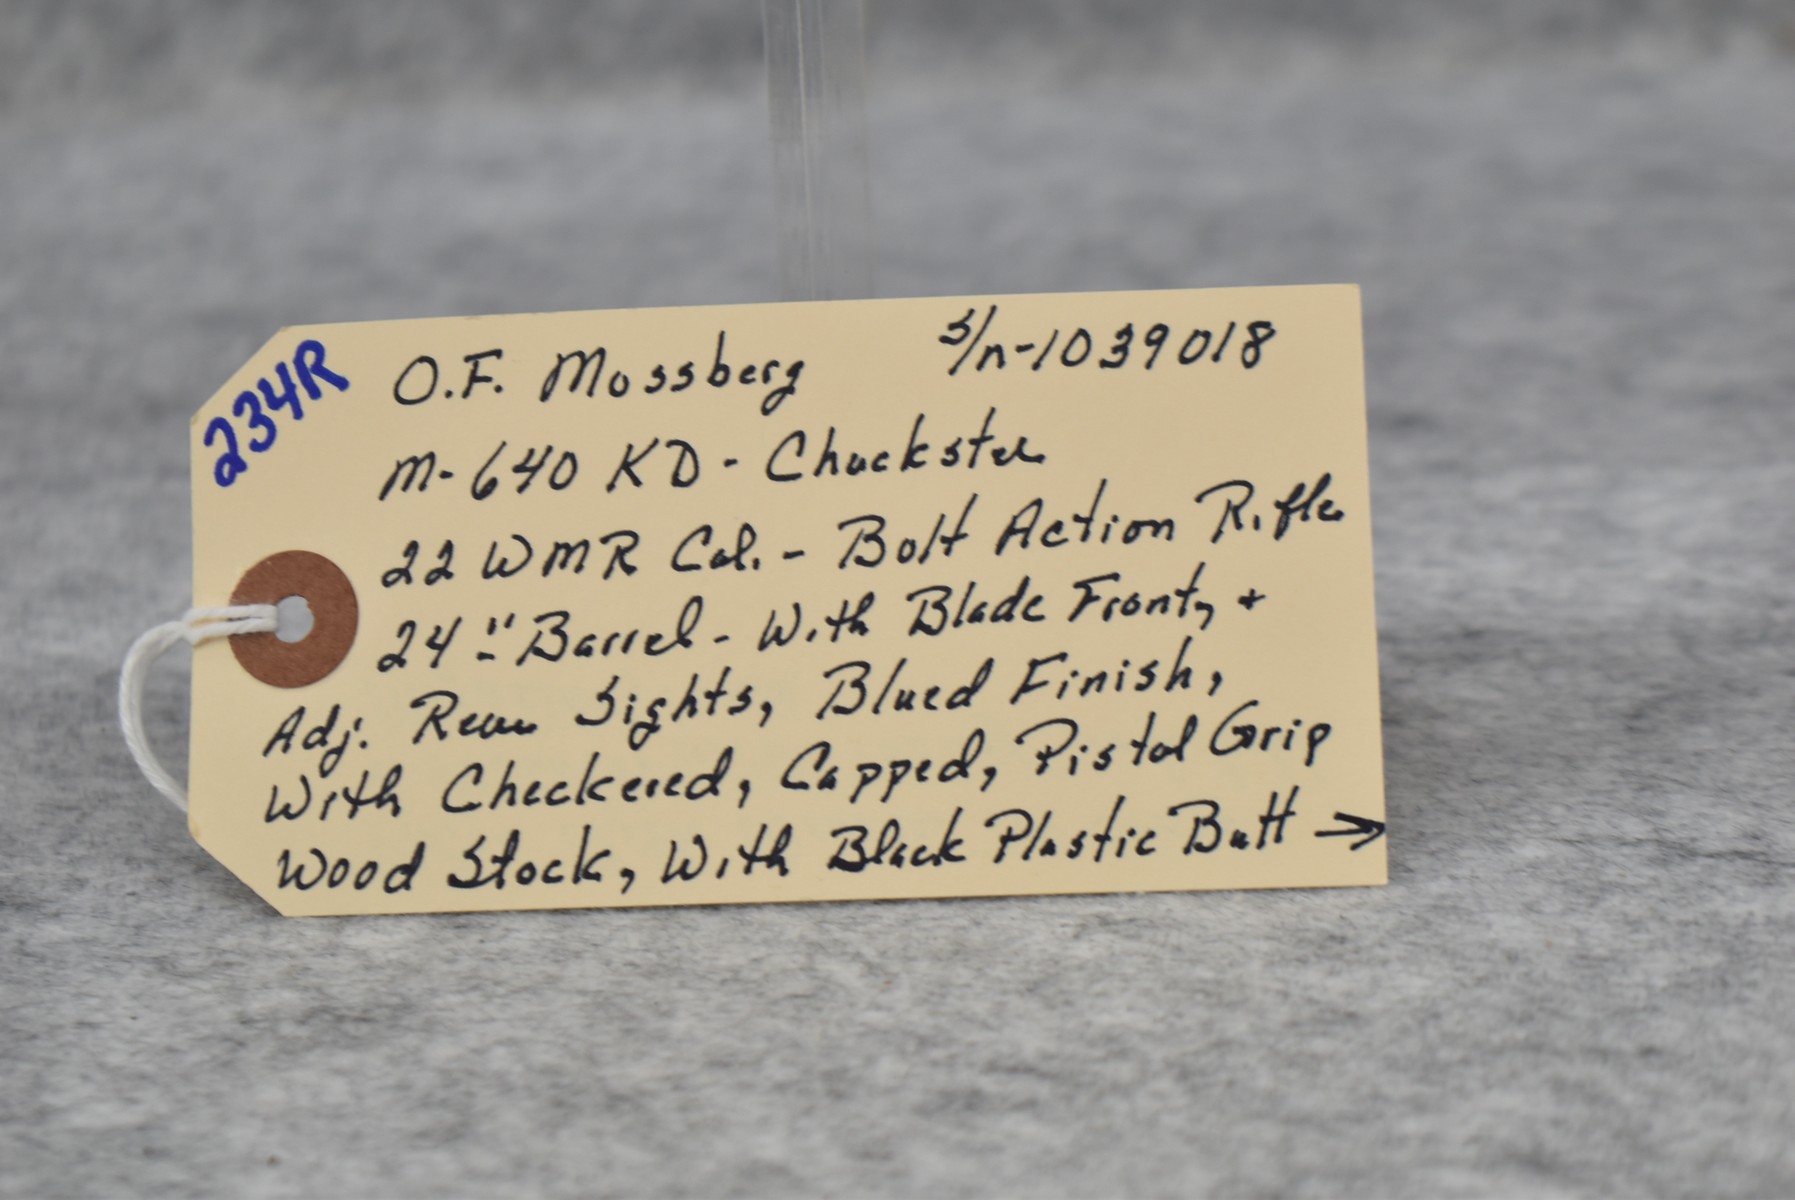 234R
O.F. Mossberg s/n-1039018
M-640 KD - Chuckster
22 WMR Cal. - Bolt Action Rifle
24" Barrel - With Blade Front, +
Adj. Rear Sights, Blued Finish,
With Checkered, Capped, Pistol Grip
Wood Stock, With Black Plastic Butt →